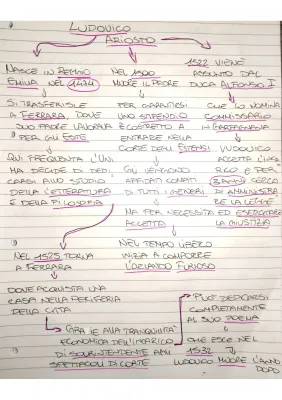 LUDOVICO
ARIOSTO
NASCE IN REGGIO
EMILIA NEL 1474
SI TRASFERISCE
A FERRARA, DOVE
SUO PADRE LAVORAVA
PER GLI ESTE
QUI FREQUENTA L'UNI
MA DECIDE DI DEDI
CARSI ALLO STUDIO
DELLA LETTERATURA
E DELLA FILOSOFIA
NEL 1500
MUORE IL PADRE
PER GARANTIRSI
UNO STIPENDIO
È COSTRETTO A
ENTRARE NELLA
CORTE DEGLI ESTENSI
GLI VENGONO
AFFIDATI COMPITI
DI TUTTI I GENERI
MA PER NECESSITÀ
ACCETTA
1522 VIENE
ASSUNTO DAL
DUCA ALFONSO I
CHE LO NOMINA
COMMISSARIO
IN GARFAGNANA
LUDOVICO
ACCETTA L'INCA
RICO E PER
3 ANNI CERCÒ
DI AMMINISTRA
RE LA LEGGE
ED ESERCITARE
LA GIUSTIZIA
NEL 1525 TORNA
A FERRARA
NEL TEMPO LIBERO
INIZIA A COMPORRE
L'ORLANDO FURIOSO
DOVE ACQUISTA UNA
CASA NELLA PERIFERIA
DELLA CITTÀ
GRAZIE ALLA TRANQUILLITÀ
ECONOMICA DELL'INCARICO
DI SOVRINTENDENTE AGLI
SPETTACOLI DI CORTE
PUÒ DEDICARSI
COMPLETAMENTE
AL SUO POEMA
CHE ESCE NEL
1532
LUDOVICO MUORE L'ANNO
DOPO